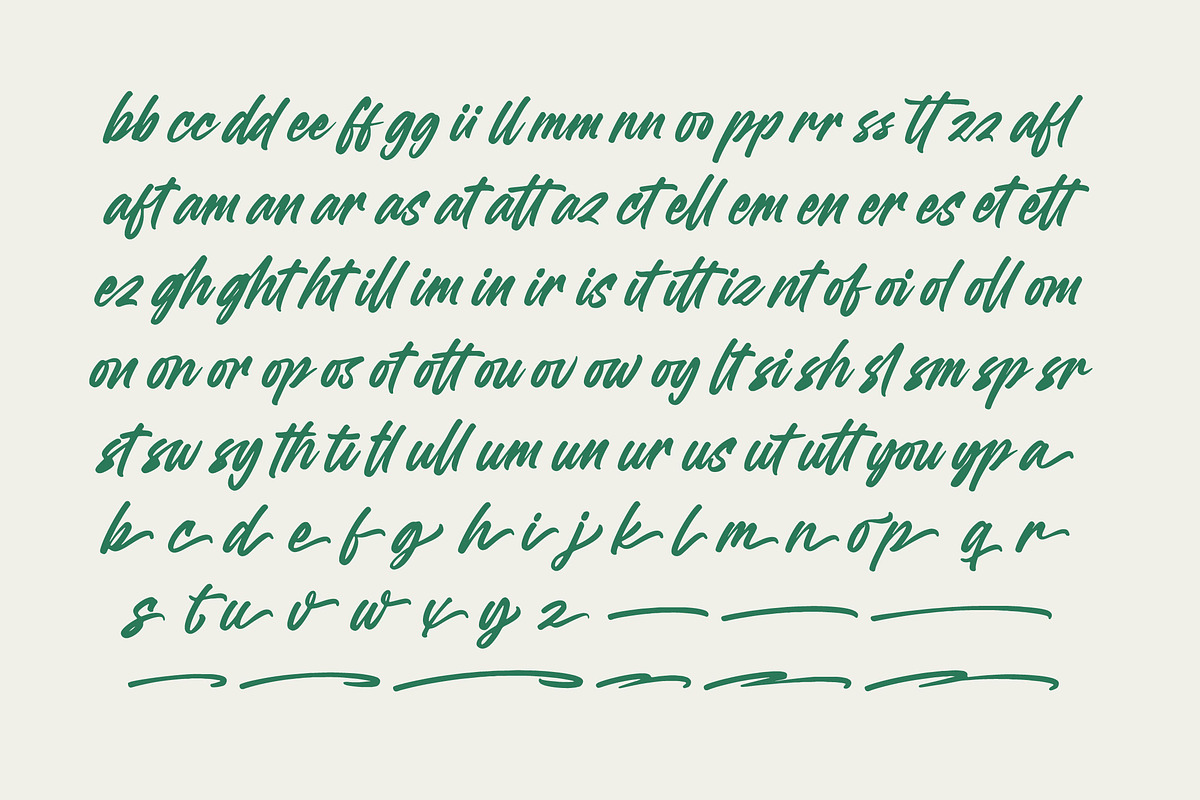 bb cc dd ee ff gg ii ll mm nn oo pp rr ss tt zz afl
aft am an ar as at att az ct ell em en er es et ett
ez gh ght ht ill im in ir is it itt iz nt of oi ol oll om
on on or op os ot ott ou ov ow oy lt si sh sl sm sp sr
st sw sy th ti tl ull um un ur us ut utt you yp a
b c d e f g h i j k l m n o p q r
s t u v w x y z